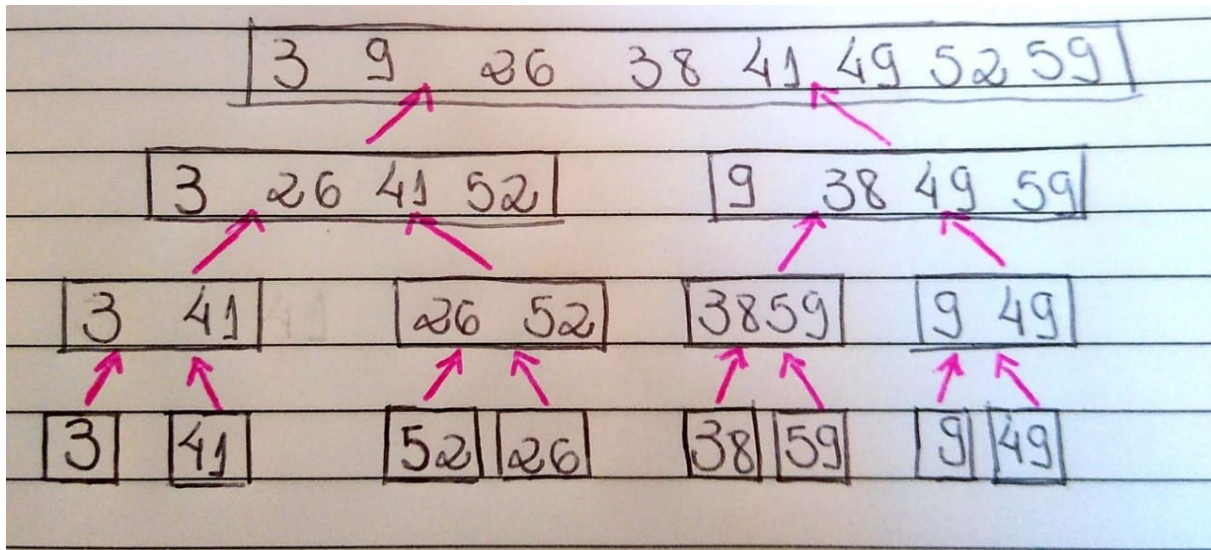 3 9 26 38 41 49 52 59
3 26 41 52 9 38 49 59
3 41 26 52 38 59 9 49
3 41 52 26 38 59 9 49